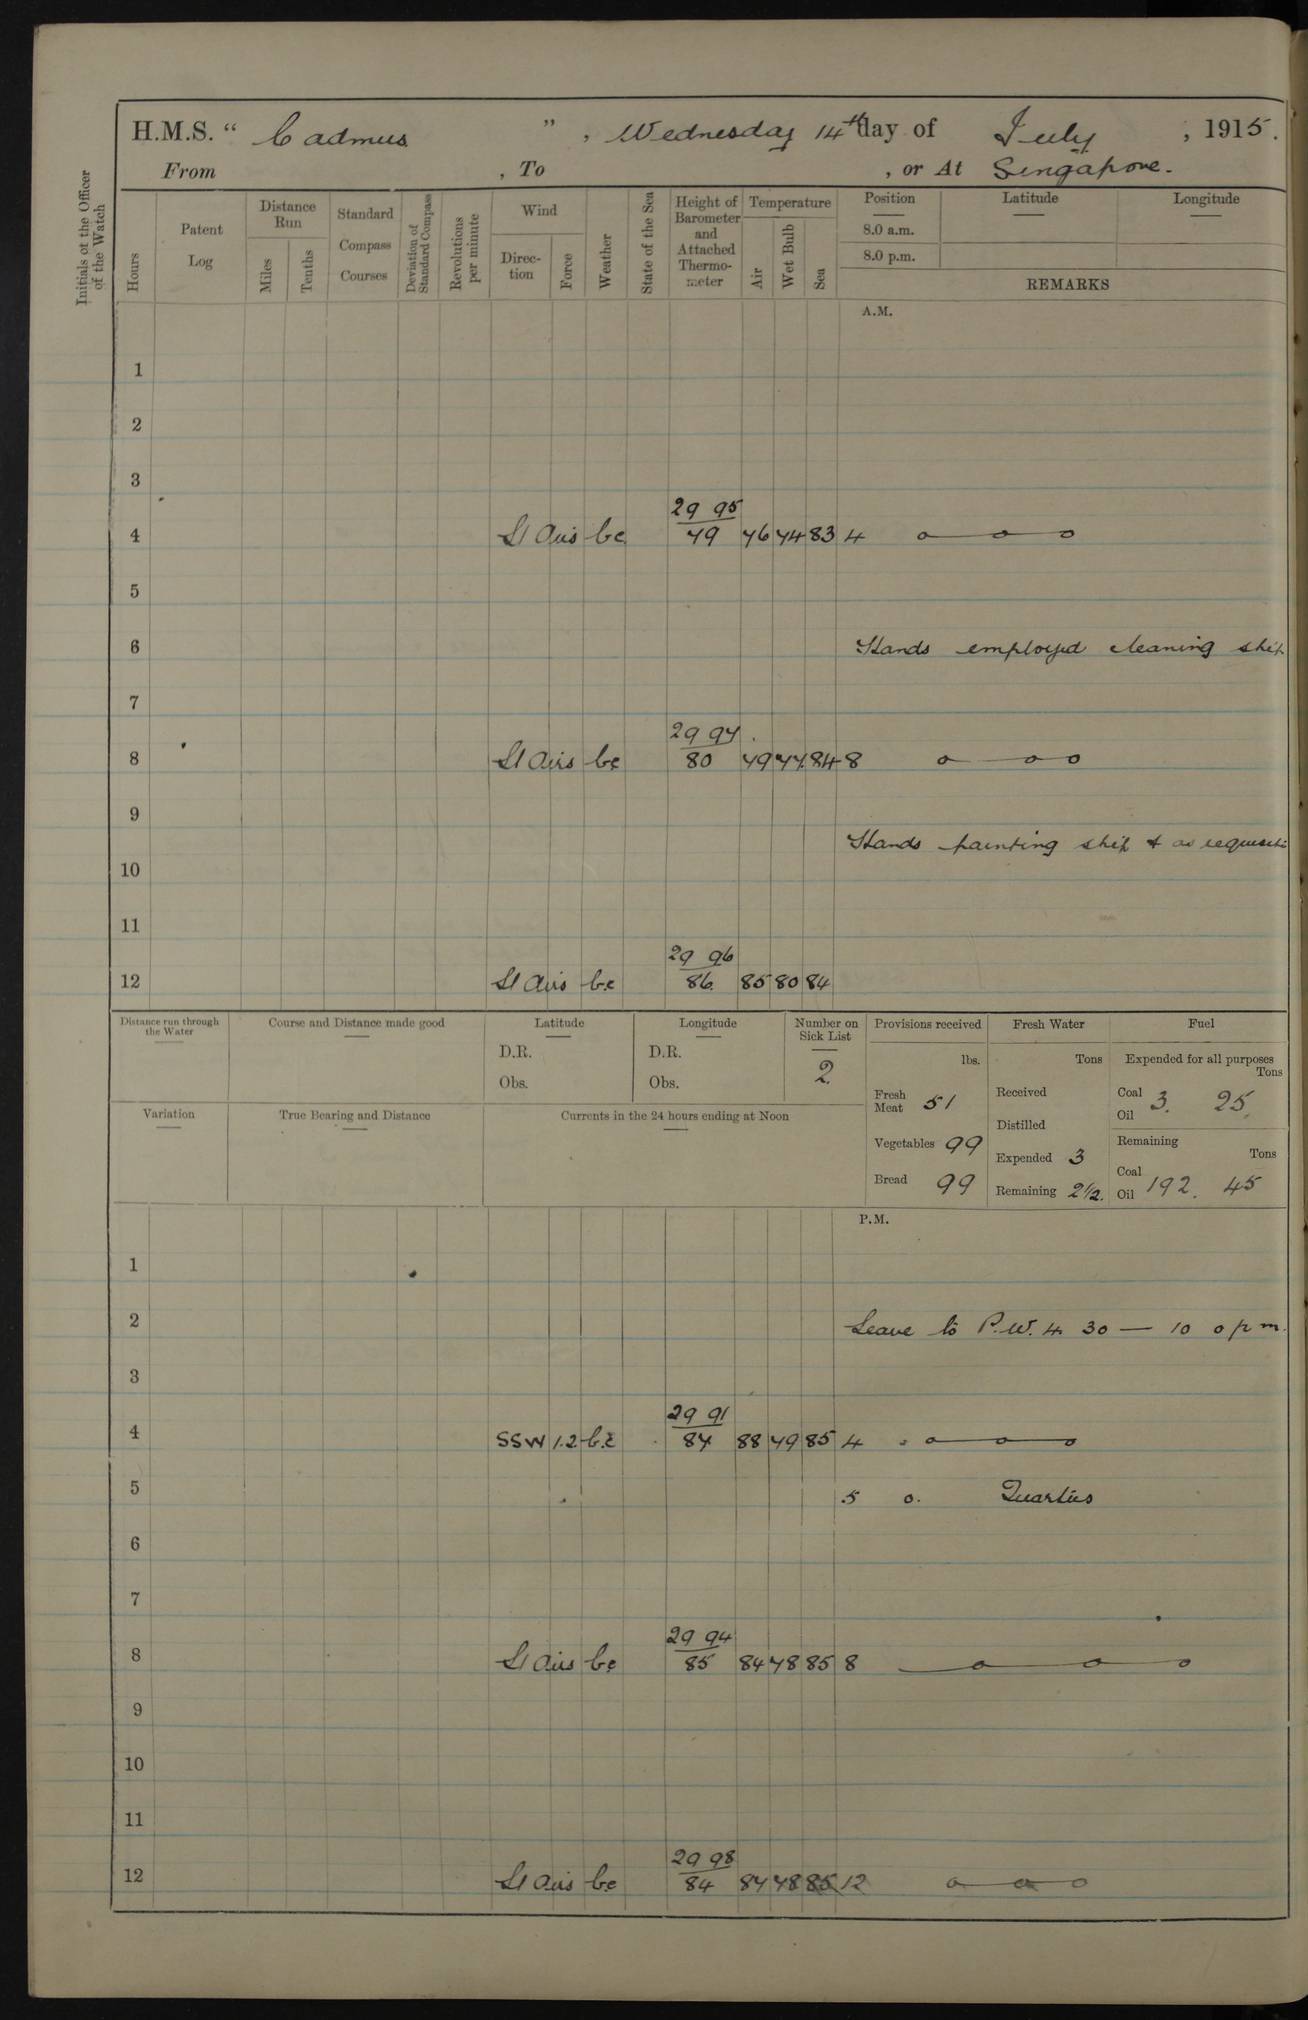 H.M.S. “ Cadmus ” , Wednesday 14th day of July , 1915.
From , To , or At Singapore.
Initials of the Officer of the Watch
Hours
Patent Log
Distance Run
Miles
Tenths
Standard Compass Courses
Deviation of Standard Compass
Revolutions per minute
Wind
Direction
Force
Weather
State of the Sea
Height of Barometer and Attached Thermometer
Temperature
Air
Wet Bulb
Sea
Position
8.0 a.m.
8.0 p.m.
Latitude
Longitude
REMARKS
A.M.
1
2
3
29 95
4 Lt Airs bc 79 76 74 83 4
5
6 Hands employed cleaning ship
7
29 97
8 Lt Airs bc 80 79 77 84 8
9
Hands painting ship & as requisite
10
11
29 96
12 Lt Airs bc 86 85 80 84
Distance run through the Water
Course and Distance made good
Latitude
D.R.
Obs.
Longitude
D.R.
Obs.
Number on Sick List
2.
Provisions received
lbs.
Fresh Meat 51
Vegetables 99
Bread 99
Fresh Water
Tons
Received
Distilled
Expended 3
Remaining 2½.
Fuel
Expended for all purposes
Tons
Coal 3. 25
Oil
Remaining
Tons
Coal 192. 45
Oil
Variation
True Bearing and Distance
Currents in the 24 hours ending at Noon
P.M.
1
2 Leave to P.W. 4 30 — 10 0 pm.
3
29 91
4 SSW 1.2 b.c 87 88 79 85 4
5 5 0. Quarters
6
7
29 94
8 Lt Airs bc 85 84 78 85 8
9
10
11
29 98
12 Lt Airs bc 84 84 78 85 12